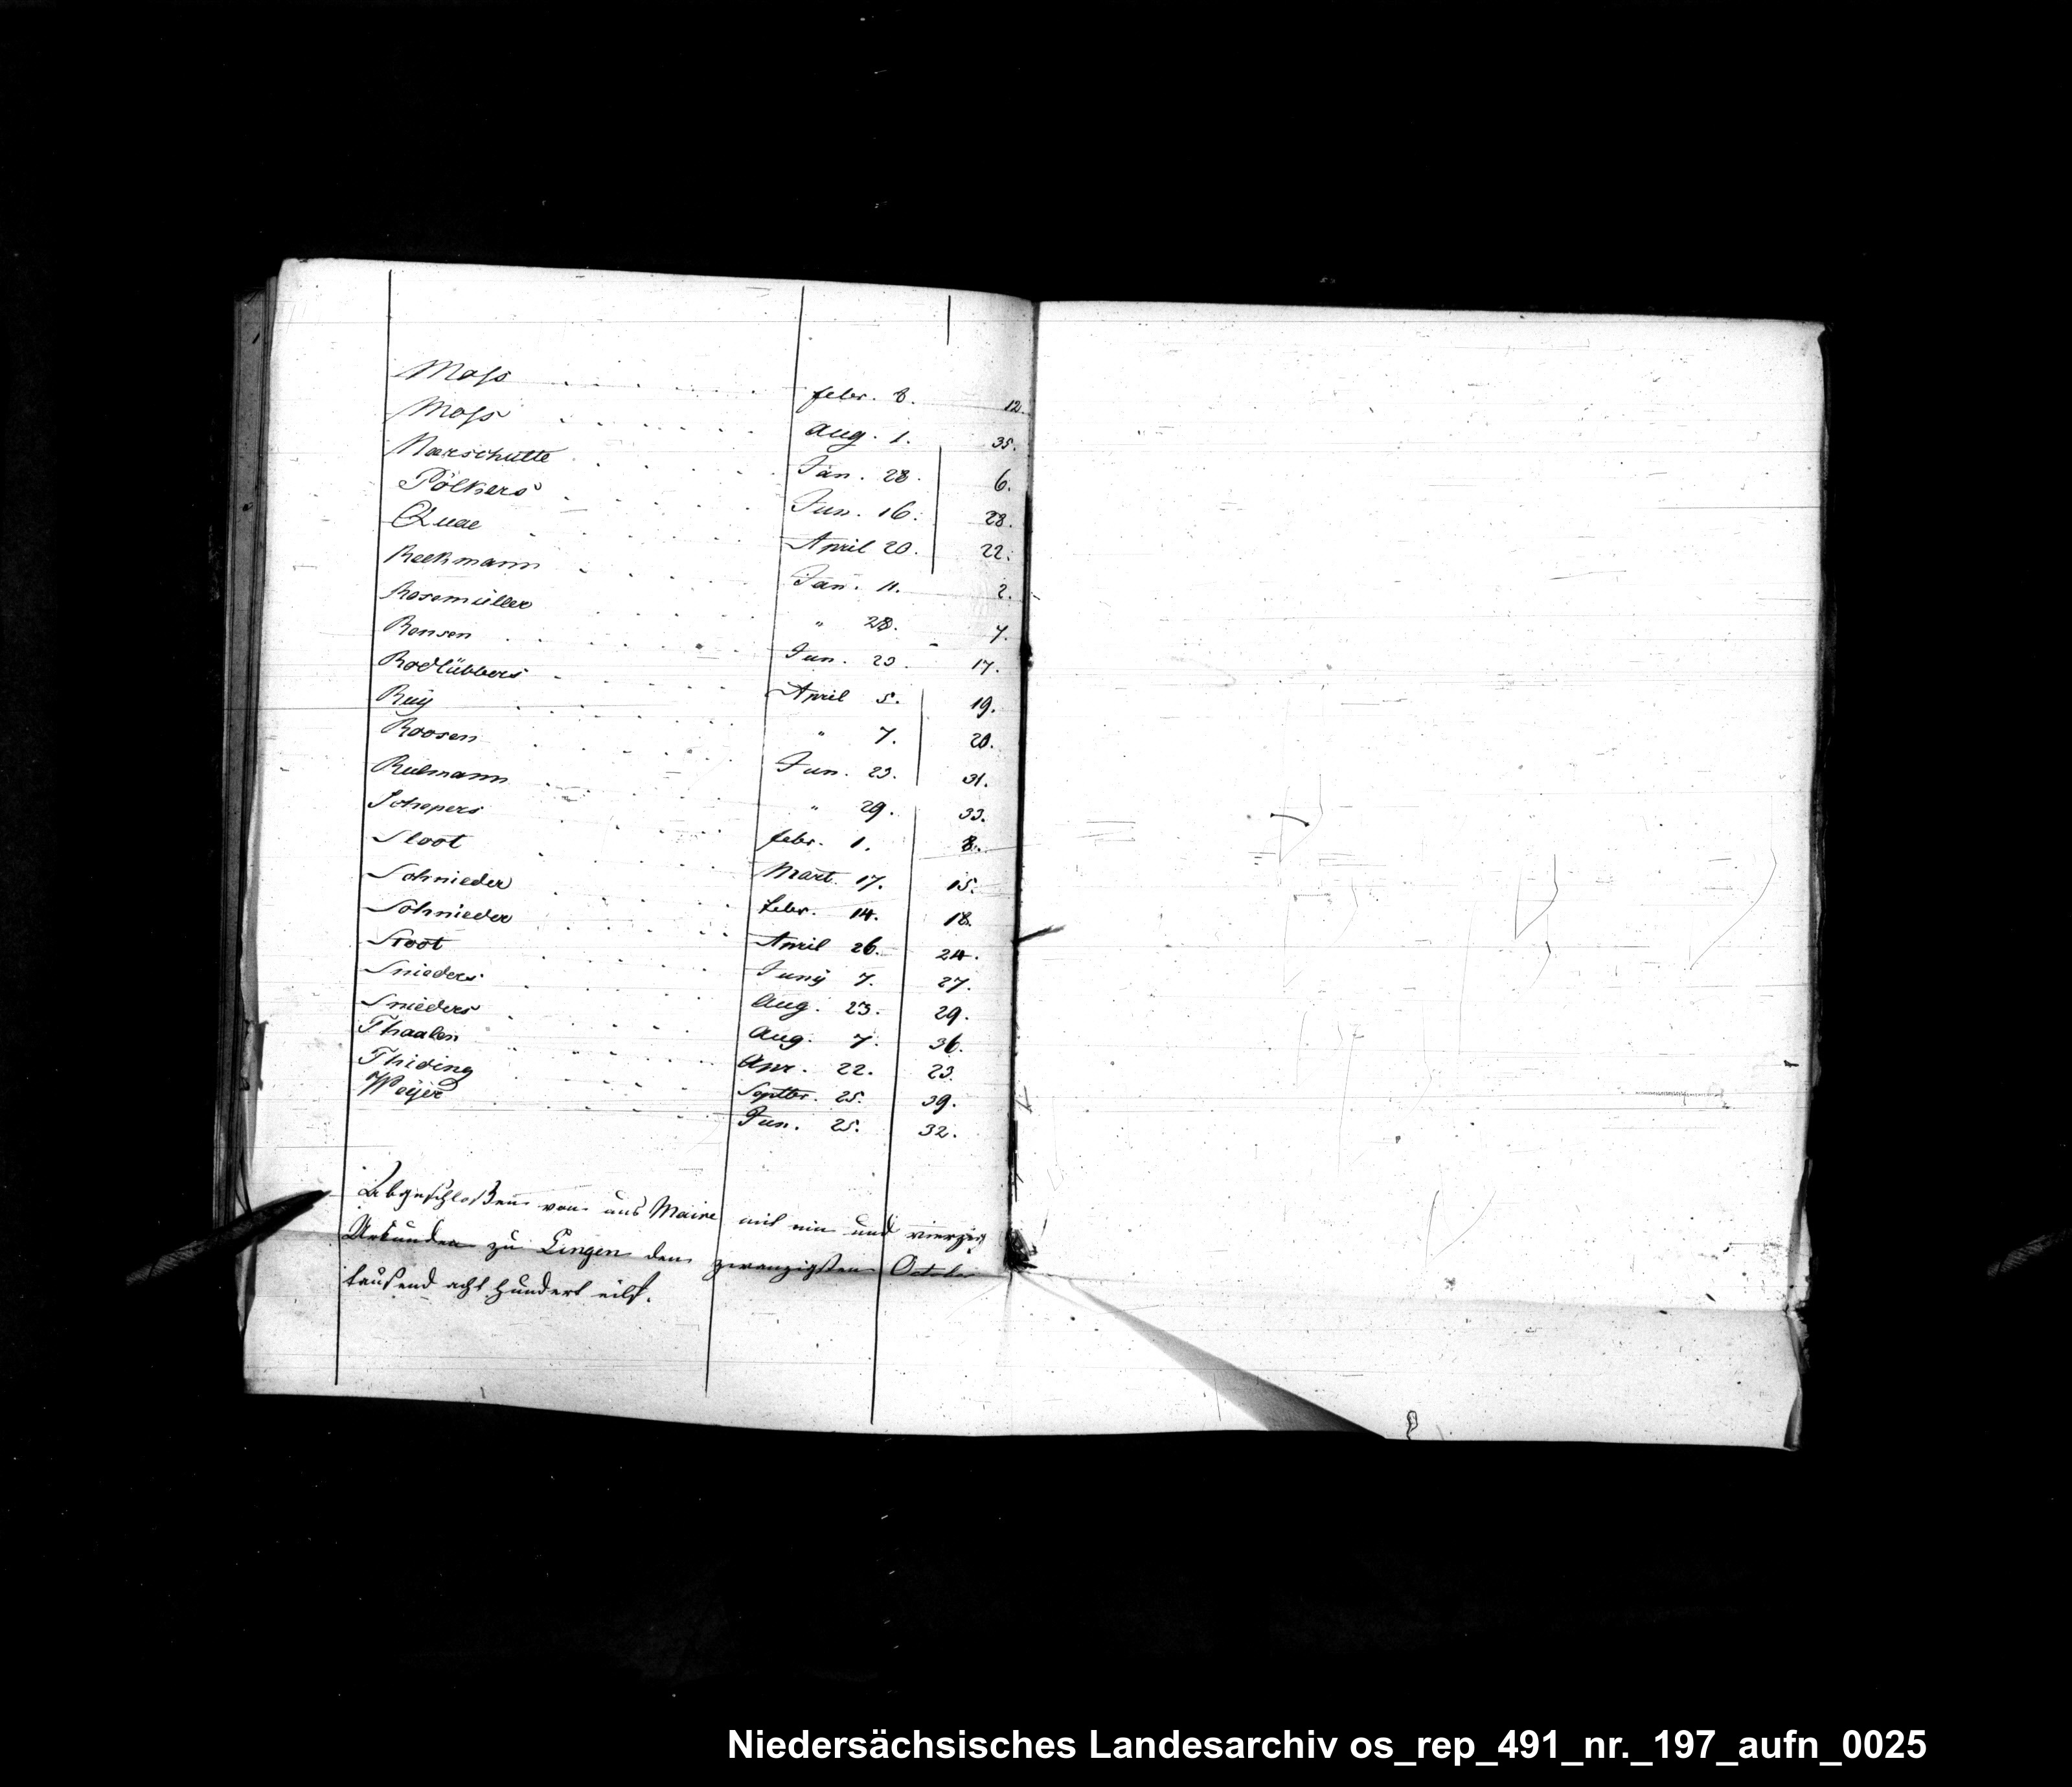 Moss febr. 8. 12.
Moss Aug. 1. 35.
Marschutte Jan. 28. 6.
Pölkers Jun. 16. 28.
Quae April 20. 22.
Reekmann Jan. 11. 2.
Rosemüller " 28. 7.
Rensen Jun. 23. 17.
Rodlübbers April 5. 19.
Ruÿ " 7. 20.
Roosen Jun. 23. 31.
Rulmann " 29. 33.
Schepers febr. 1. 8.
Sloot Mart. 17. 15.
Schnieder febr. 14. 18.
Schnieder April 26. 24.
Sloot Junÿ 7. 27.
Snieders Aug. 23. 29.
Snieders Aug. 7. 36.
Thaalen Apr. 22. 23.
Thiding Septbr. 25. 39.
Weÿer Jun. 25. 32.
Abgeschloßen von uns Maire mit ein und vierzig
Urkunden zu Lingen den zwanzigsten October
tausend acht hundert eilf.
Niedersächsisches Landesarchiv os_rep_491_nr._197_aufn_0025